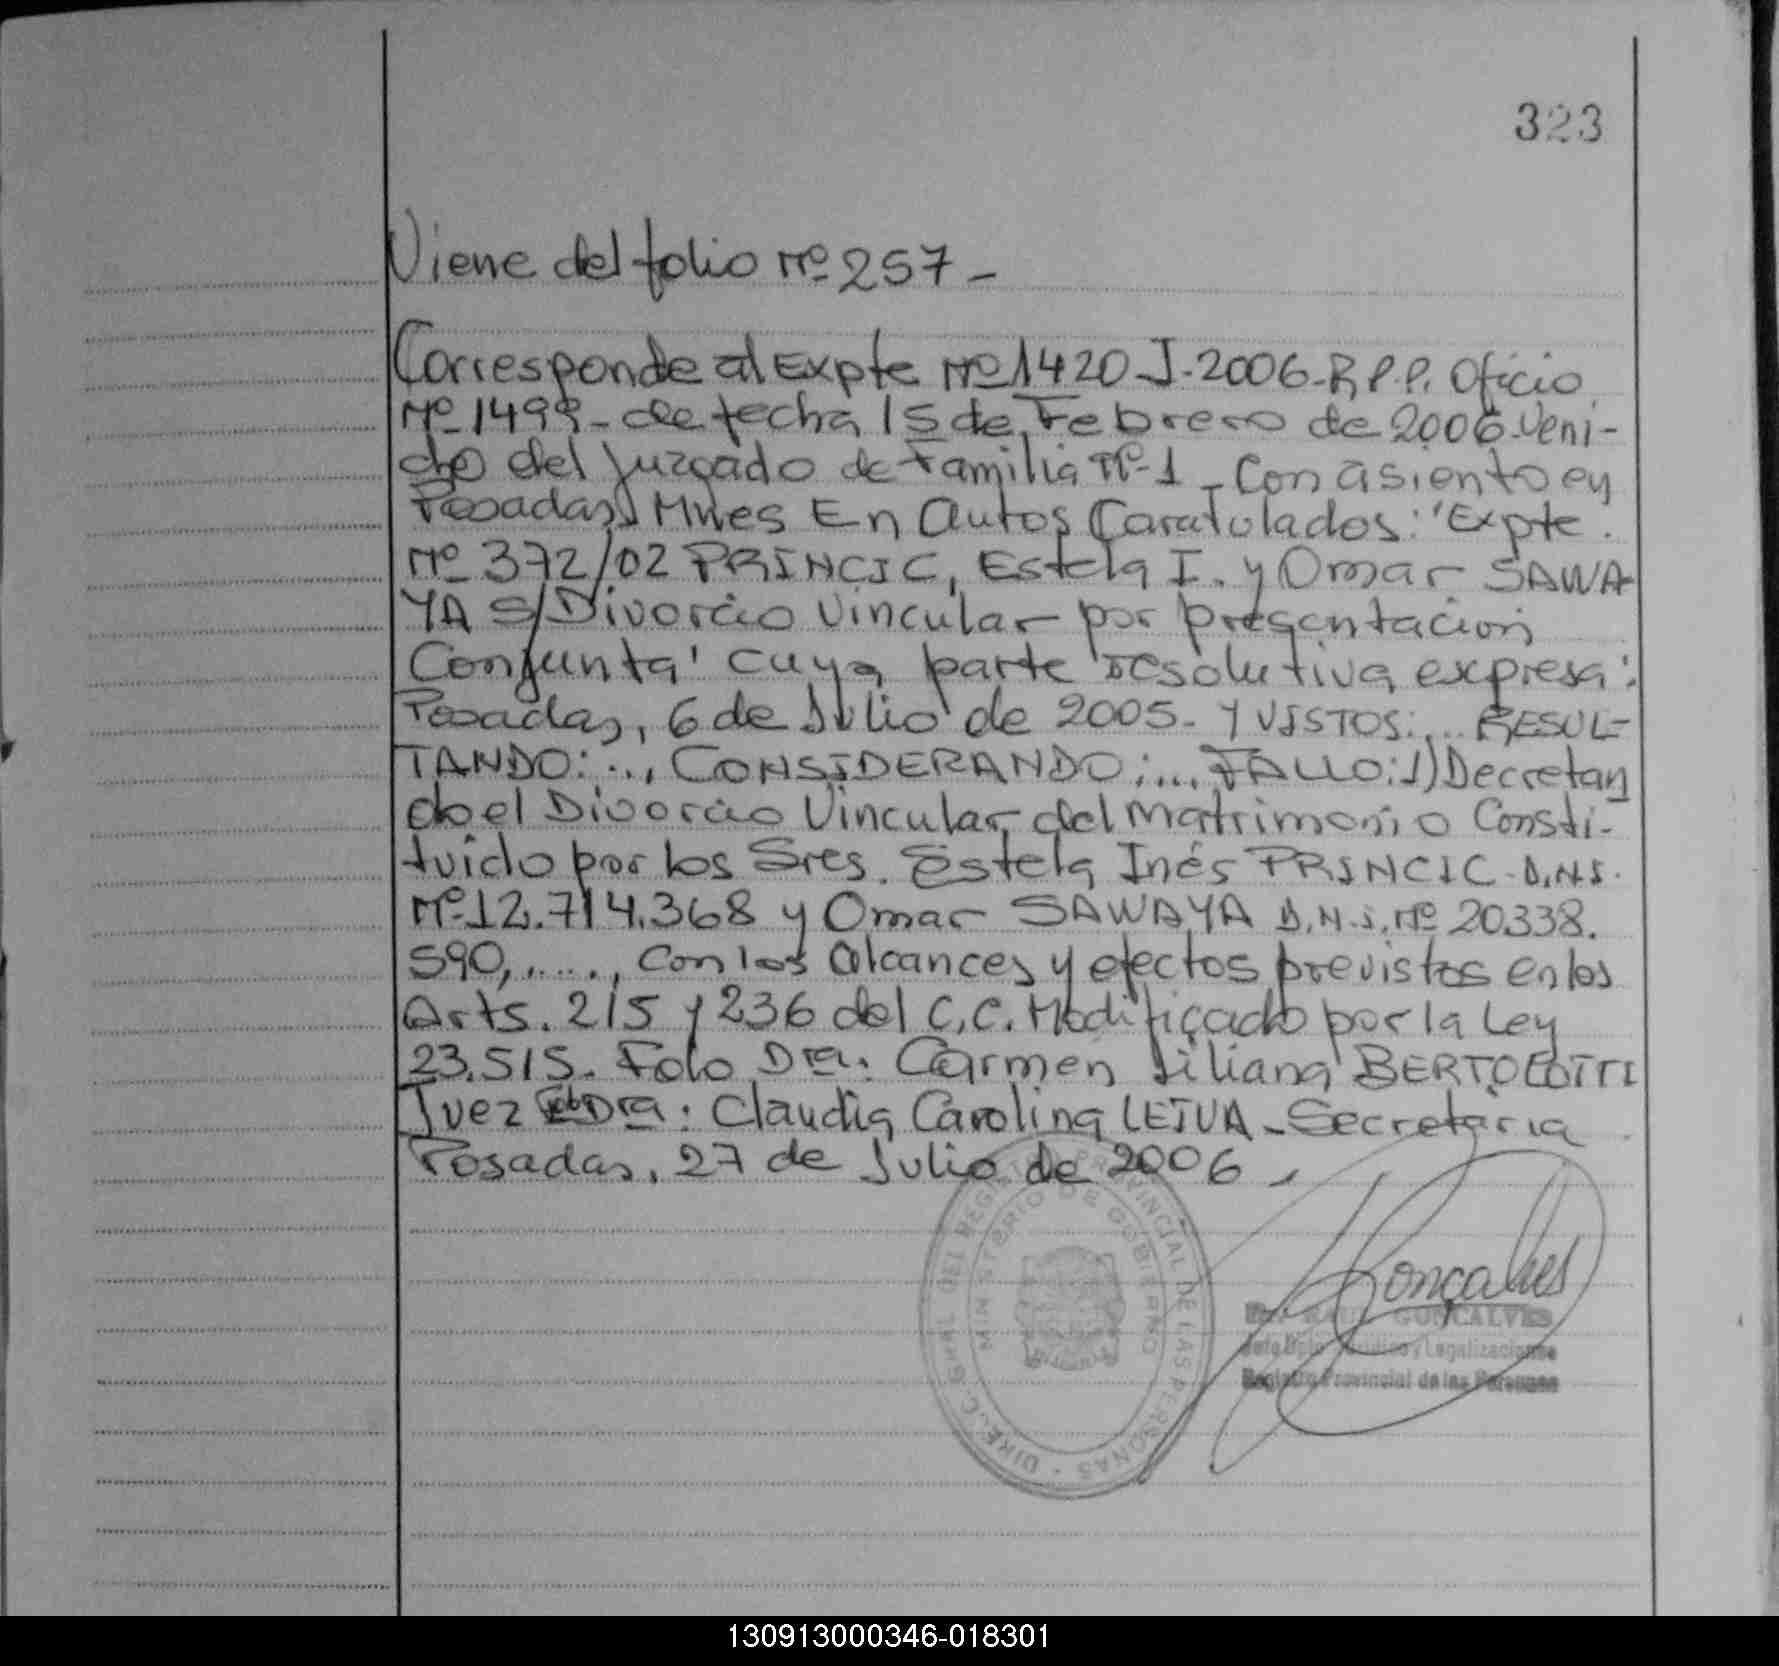 323
Viene del folio Nº 257 -
Corresponde al Expte Nº 1420-J-2006-R.P.P. Oficio
Nº 1499- de fecha 15 de Febrero de 2006-Veni-
do del Juzgado de Familia Nº-1 - Con asiento en
Posadas, Mnes En autos Caratulados: "Expte.
Nº 372/02 PRINCIC, Estela I. y Omar SAWA-
YA S/Divorcio Vincular por presentación
Conjunta" cuya parte resolutiva expresa:
Posadas, 6 de Julio de 2005. Y VISTOS:... RESUL-
TANDO:..., CONSIDERANDO:... FALLO: 1) Decretan
do el Divorcio Vincular del Matrimonio Consti-
tuido por los Sres. Estela Inés PRINCIC. D.N.I.
Nº-12.714.368 y Omar SAWAYA D.N.I. Nº 20.338.
590,....., con los alcances y efectos previstos en los
Arts. 215 y 236 del C.C. Modificado por la Ley
23.515. Fdo Dra. Carmen Liliana
Juez Dra: Claudia Carolina LEIVA - Secretaria
Posadas, 27 de Julio de 2006.
DIREC. GRAL DEL REGISTRO PROVINCIAL DE LAS PERSONAS
MINISTERIO DE GOBIERNO
Gonçalves
RAUL GONCALVES
Jefe Dpto Jurídico y Legalizaciones
Registro Provincial de las Personas
130913000346-018301